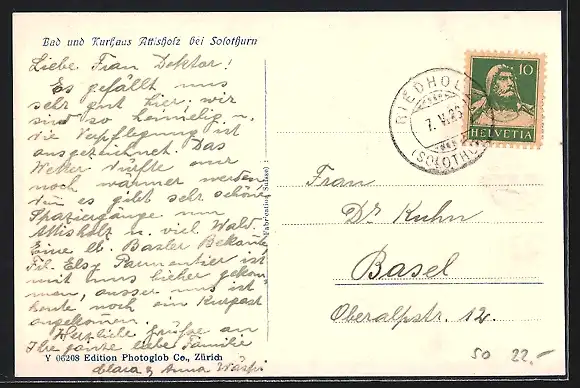 Bad und Kurhaus Attisholz bei Solothurn
Liebe Frau Doktor!
Es gefällt uns
sehr gut hier, wir
sind so heimelig u.
die Verpflegung ist
ausgezeichnet. Das
Wetter dürfte nur
noch wärmer werden
denn es gibt sehr schöne
Spaziergänge um
Attisholz u. viel Wald.
Eine lb. Basler Bekannte,
Frl. Elsy Parmentier ist
mit uns hieher gekom-
men, ausser uns ist
heute noch ein Kurgast
angekommen.
Herzliche Grüsse an
Ihre ganze liebe Familie
Clara & Anna
Y 06208 Edition Photoglob Co., Zürich
(Fabrication Suisse)
RIEDHOLZ
7. V. 25
(SOLOTHU
10
HELVETIA
Frau
Dr Kuhn
Basel
Oberalpstr. 12.
50 22.-